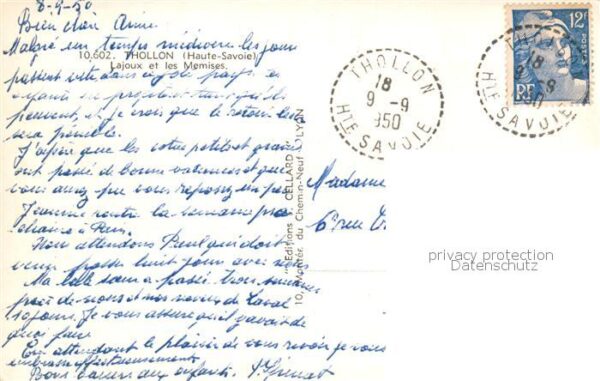 8-9-50
Bien chère Amie
Malgré un temps médiocre les jours
10.602. THOLLON (Haute-Savoie)
Lajoux et les Memises.
passent vite dans ce joli pays. Les
enfants en profitent tant qu'ils
peuvent, et je crois que le retour
sera pénible.
J'espère que les vôtres petits et grands
ont passé de bonnes vacances et que
vous avez pu vous reposer un peu
Jeanne rentre la semaine pro
chaine à Paris.
Nous attendons Paul qui doit
venir passer huit jours avec nous
Ma a passé trois semaines
près de nous et nos de Laval
10 jours. Je vous assure qu'il y avait de
quoi faire
En attendant le plaisir de vous revoir je vous
embrasse affectueusement
Bons baisers aux enfants.
"Editions CELLARD"
10, Montée du Chemin-Neuf LYON
THOLLON
18
9-9
950
HTE SAVOIE
12F
POSTES
RF
THOLLON
18
9-9
950
HTE SAVOIE
Madame
6 rue
privacy protection
Datenschutz